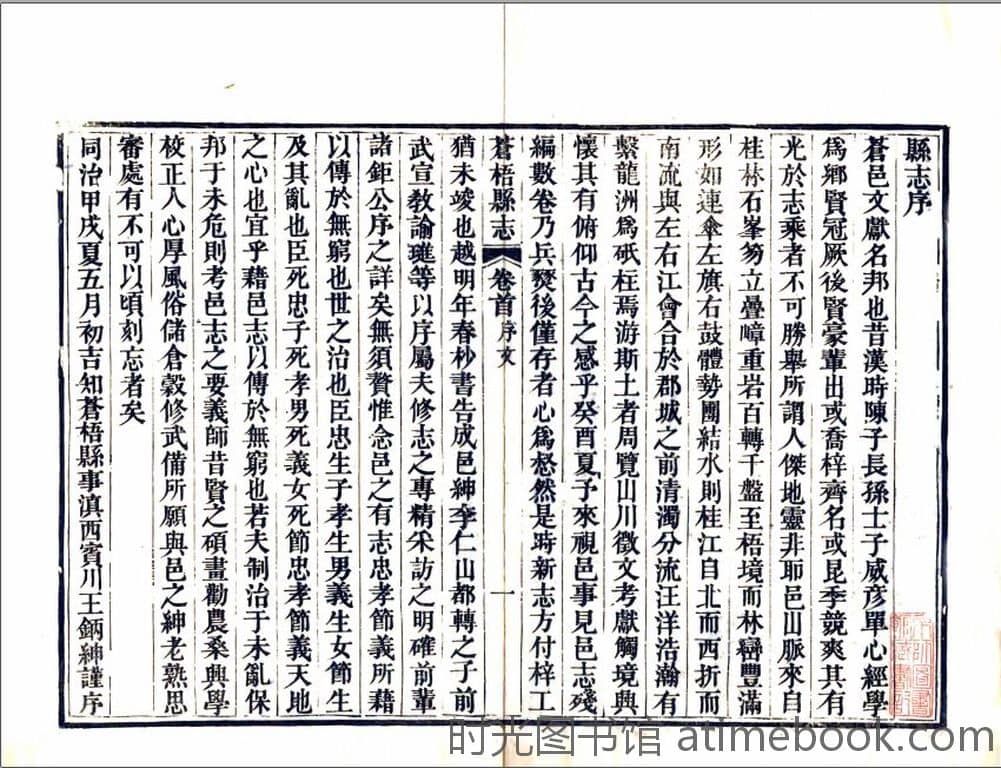 縣志序
蒼邑文獻名邦也昔漢時陳子長孫士子威彥單心經學
爲鄉賢冠厥後賢豪輩出或喬梓齊名或昆季競爽其有
光於志乘者不可勝舉所謂人傑地靈非耶邑山脈來自
桂林石峯笏立疊嶂重岩百轉千盤至梧境而林巒豐滿
形如連傘左旗右鼓體勢團結水則桂江自北而西折而
南流與左右江會合於郡城之前清濁分流汪洋浩瀚有
繫龍洲爲砥柱焉游斯土者周覽山川徵文考獻觸境興
懷其有俯仰古今之感乎癸酉夏予來視邑事見邑志殘
編數卷乃兵燹後僅存者心爲愁然是時新志方付梓工
蒼梧縣志 卷首 序文 一
猶未竣也越明年春杪書告成邑紳李仁山都轉之子前
武宣教諭璡等以序屬夫修志之專精采訪之明確前輩
諸鉅公序之詳矣無須贅惟念邑之有志忠孝節義所藉
以傳於無窮也世之治也臣忠生子孝生男義生女節生
及其亂也臣死忠子死孝男死義女死節忠孝節義天地
之心也宜乎藉邑志以傳於無窮也若夫制治于未亂保
邦于未危則考邑志之要義師昔賢之碩畫勸農桑興學
校正人心厚風俗儲倉穀修武備所願與邑之紳老熟思
審處有不可以頃刻忘者矣
同治甲戌夏五月初吉知蒼梧縣事滇西賓川王鈵紳謹序
时光图书馆 atimebook.com